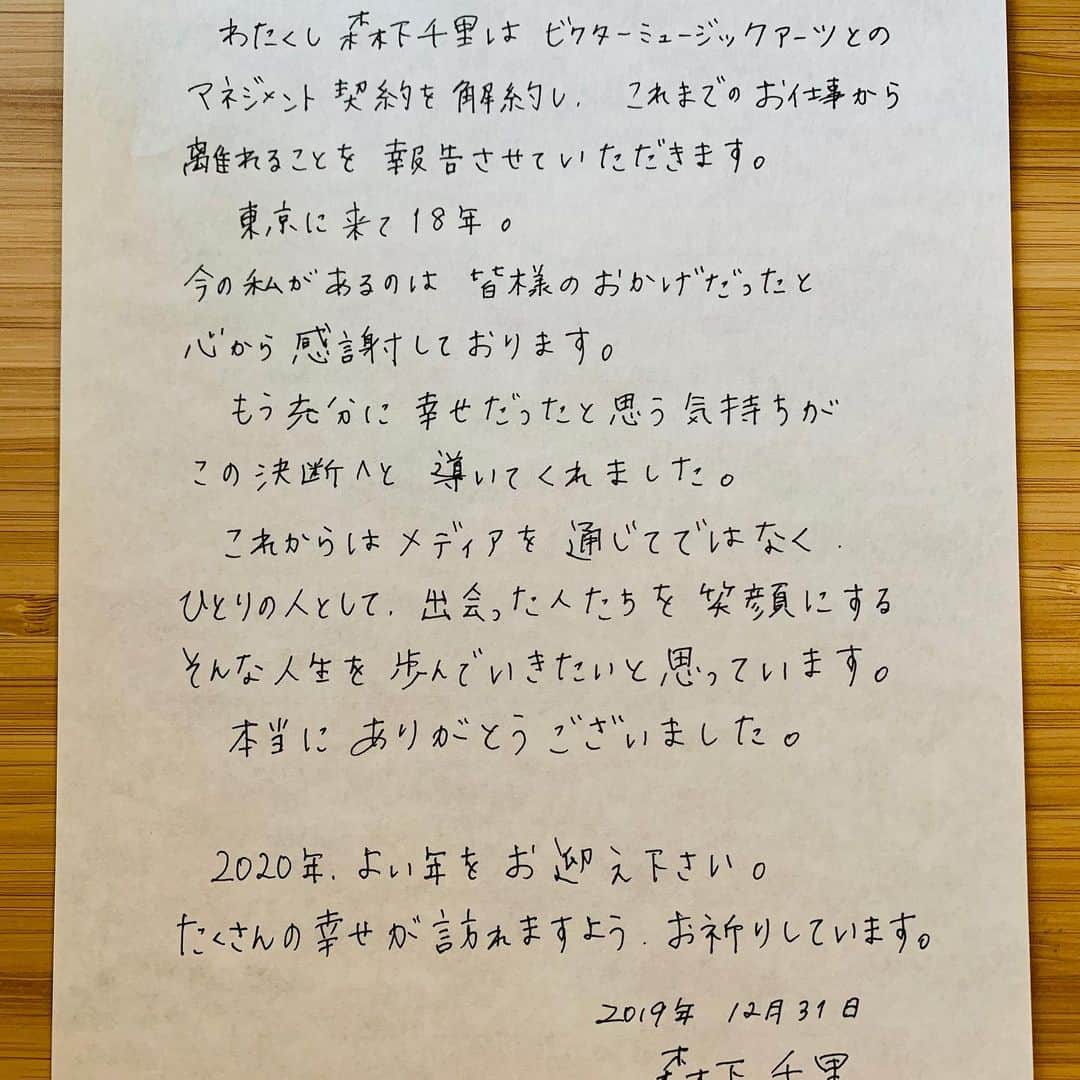 わたくし 森下千里は ビクターミュージックアーツとの
マネジメント 契約を 解約し、これまでの お仕事から
離れることを 報告させていただきます。
東京に 来て 18年。
今の 私が あるのは 皆様の おかげだったと
心から 感謝しております。
もう 充分に 幸せだったと 思う 気持ちが
この 決断へと 導いてくれました。
これからは メディアを 通じてではなく、
ひとりの人として、出会った 人たちを 笑顔にする
そんな 人生を 歩んでいきたいと 思っています。
本当に ありがとうございました。
2020年、よい 年を お迎え下さい。
たくさんの 幸せが 訪れますよう、お祈りしています。
2019年 12月31日
森下 千里